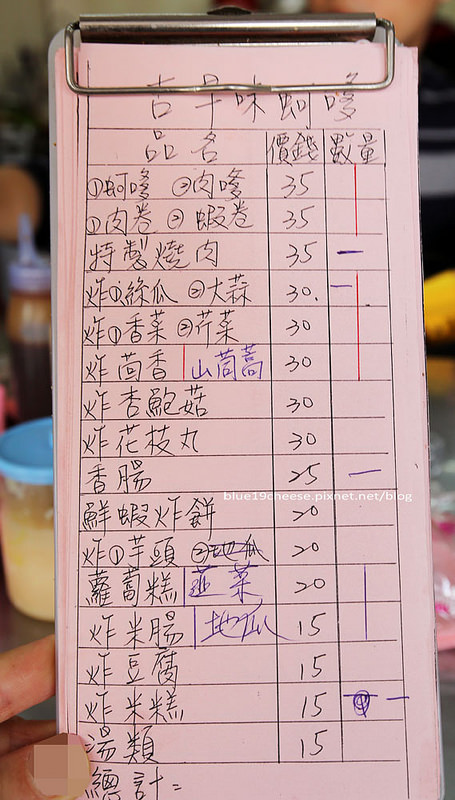 古早味蚵嗲
品名 價錢 數量
①蚵嗲 ②肉嗲 35
①肉卷 ② 蝦卷 35
特製燒肉 35 一
炸①絲瓜 ②大蒜 30. 一
炸①香菜 ②芹菜 30
炸茴香 山茼蒿 30
炸杏鮑菇 30
炸花枝丸 30
香腸 25 一
blue19cheese.pixnet.net/blog
鮮蝦炸餅 20
炸①芋頭 ②地瓜 20
蘿蔔糕 韮菜 20
炸米腸 地瓜 15
炸豆腐 15
炸米糕 15 一
湯類 15
總計=